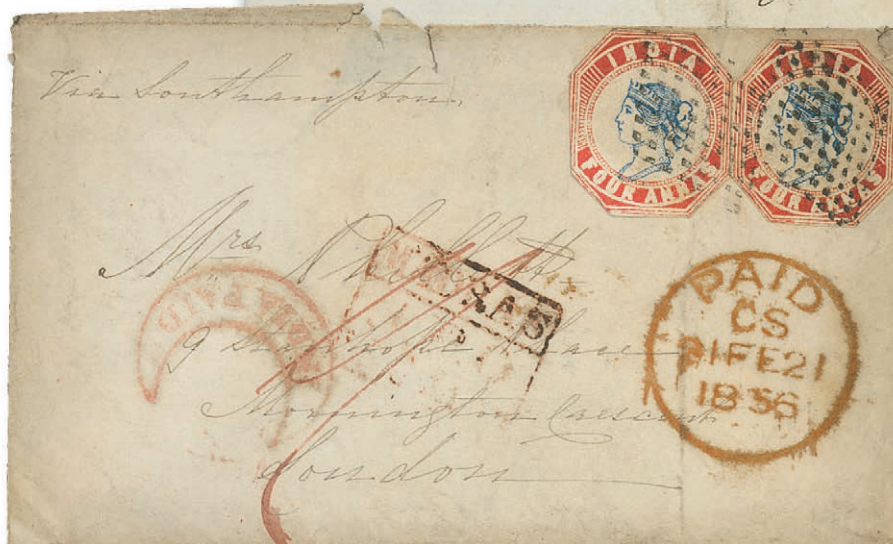 Via Southampton
INDIA
FOUR ANNAS
INDIA
FOUR ANNAS
Mrs
INDIA PAID
MADRAS
PAID
CS
21FE21
1856
9 Place
Mornington Crescent
London